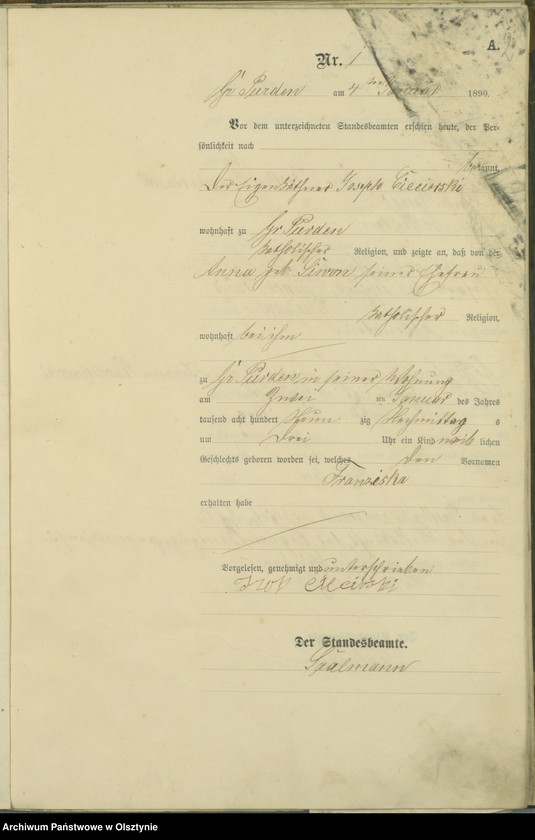 A.
Nr. 1
Gr Purden am 4ten Januar 1890.
Vor dem unterzeichneten Standesbeamten erschien heute, der Per-
sönlichkeit nach
bekannt,
Der Eigenkäthner Joseph Cieciorski
wohnhaft zu Gr Purden
katholischer Religion, und zeigte an, daß von der
Anna geb. Siwon seiner Ehefrau
katholischer Religion,
wohnhaft bei ihm
zu Gr Purden in seiner Wohnung
am Zwei ten Januar des Jahres
tausend acht hundert Neun zig Nachmittag s
um Drei Uhr ein Kind weib lichen
Geschlechts geboren worden sei, welches den Vornamen
Franziska
erhalten habe
Vorgelesen, genehmigt und unterschrieben
Der Standesbeamte.
Saalmann
Archiwum Państwowe w Olsztynie